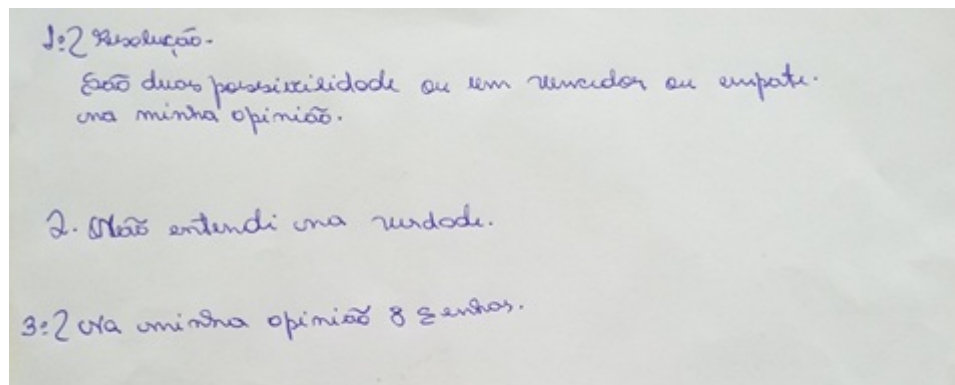 1:) Resolução.
São duas possixilidade ou um vencedor ou empate.
na minha opinião.
2. Não entendi na verdade.
3:) Na minha opinião 8 senhas.